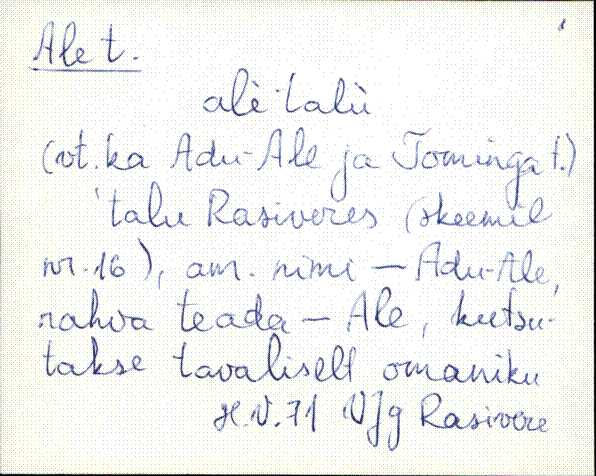 Ale t.
alè·talù
(vt. ka Adu-Ale ja Tominga t.)
'talu Rasiveres (skeemil
nr. 16), am. nimi — Adu-Ale,
rahva teada — Ale, kutsu-
takse tavaliselt omaniku
H.V. 71 VJg Rasivere